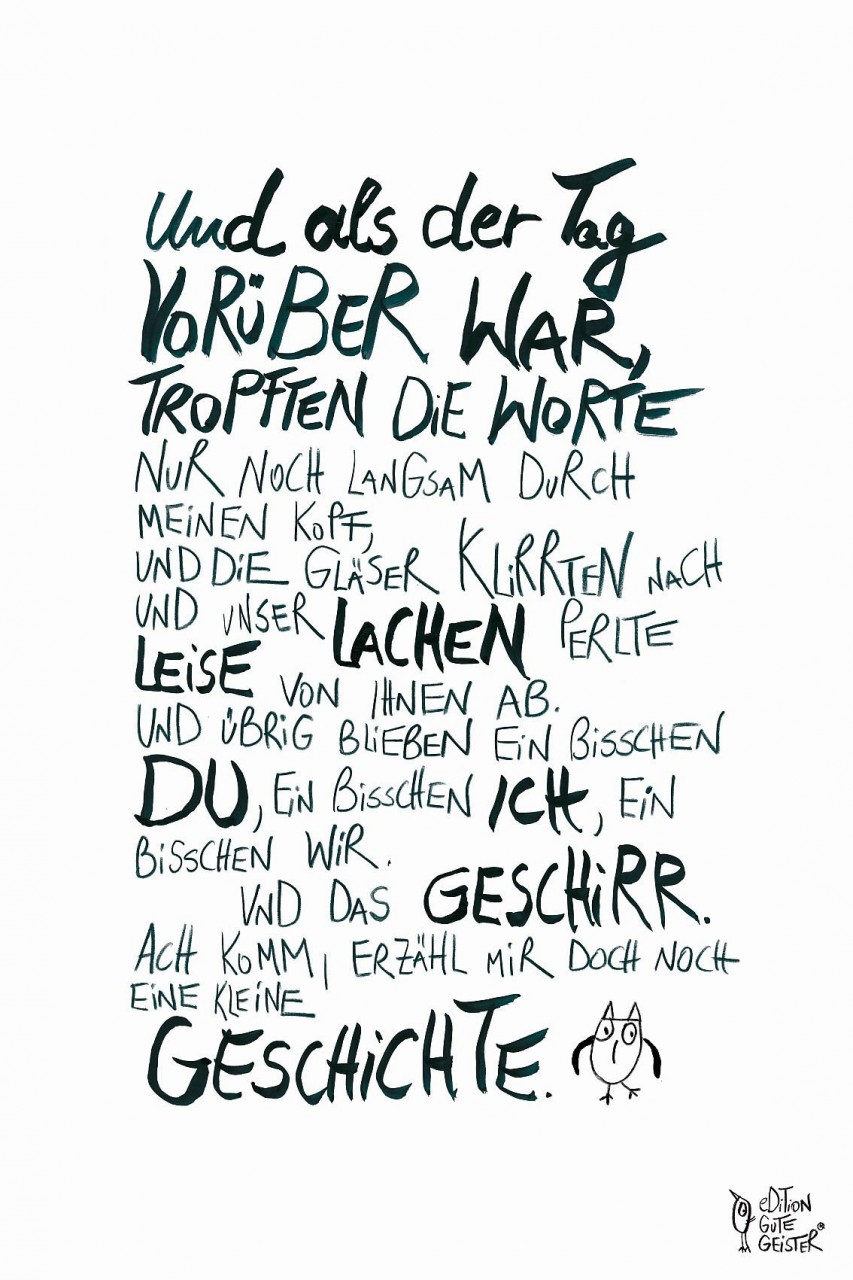 Und als der Tag
VORÜBER WAR,
TROPFTEN DIE WORTE
NUR NOCH LANGSAM DURCH
MEINEN KOPF,
UND DIE GLÄSER KLIRRTEN NACH
UND UNSER LACHEN PERLTE
LEISE VON IHNEN AB.
UND ÜBRIG BLIEBEN EIN BISSCHEN
DU, EIN BISSCHEN ICH, EIN
BISSCHEN WIR.
UND DAS GESCHIRR.
ACH KOMM, ERZÄHL MIR DOCH NOCH
EINE KLEINE
GESCHICHTE.
eDITION
GUTE
GEISTER®